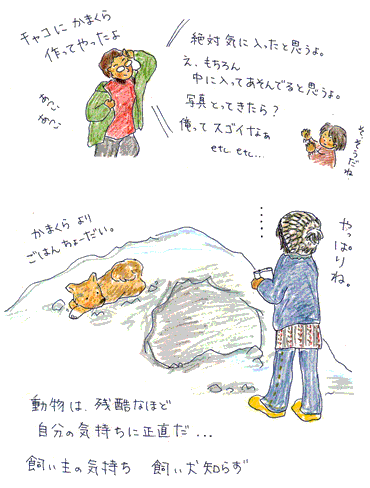 チャコに かまくら
作ってやったよ
絶対気に入ったと思うよ。
え、もちろん
中に入ってあそんでると思うよ。
写真とってきたら？
俺ってスゴイなぁ
etc. etc...
そ、そうだね
かまくら より
ごはんちょーだい。
......
やっぱりね。
動物は、残酷なほど
自分の気持ちに正直だ...
飼い主の気持ち 飼い犬知らず